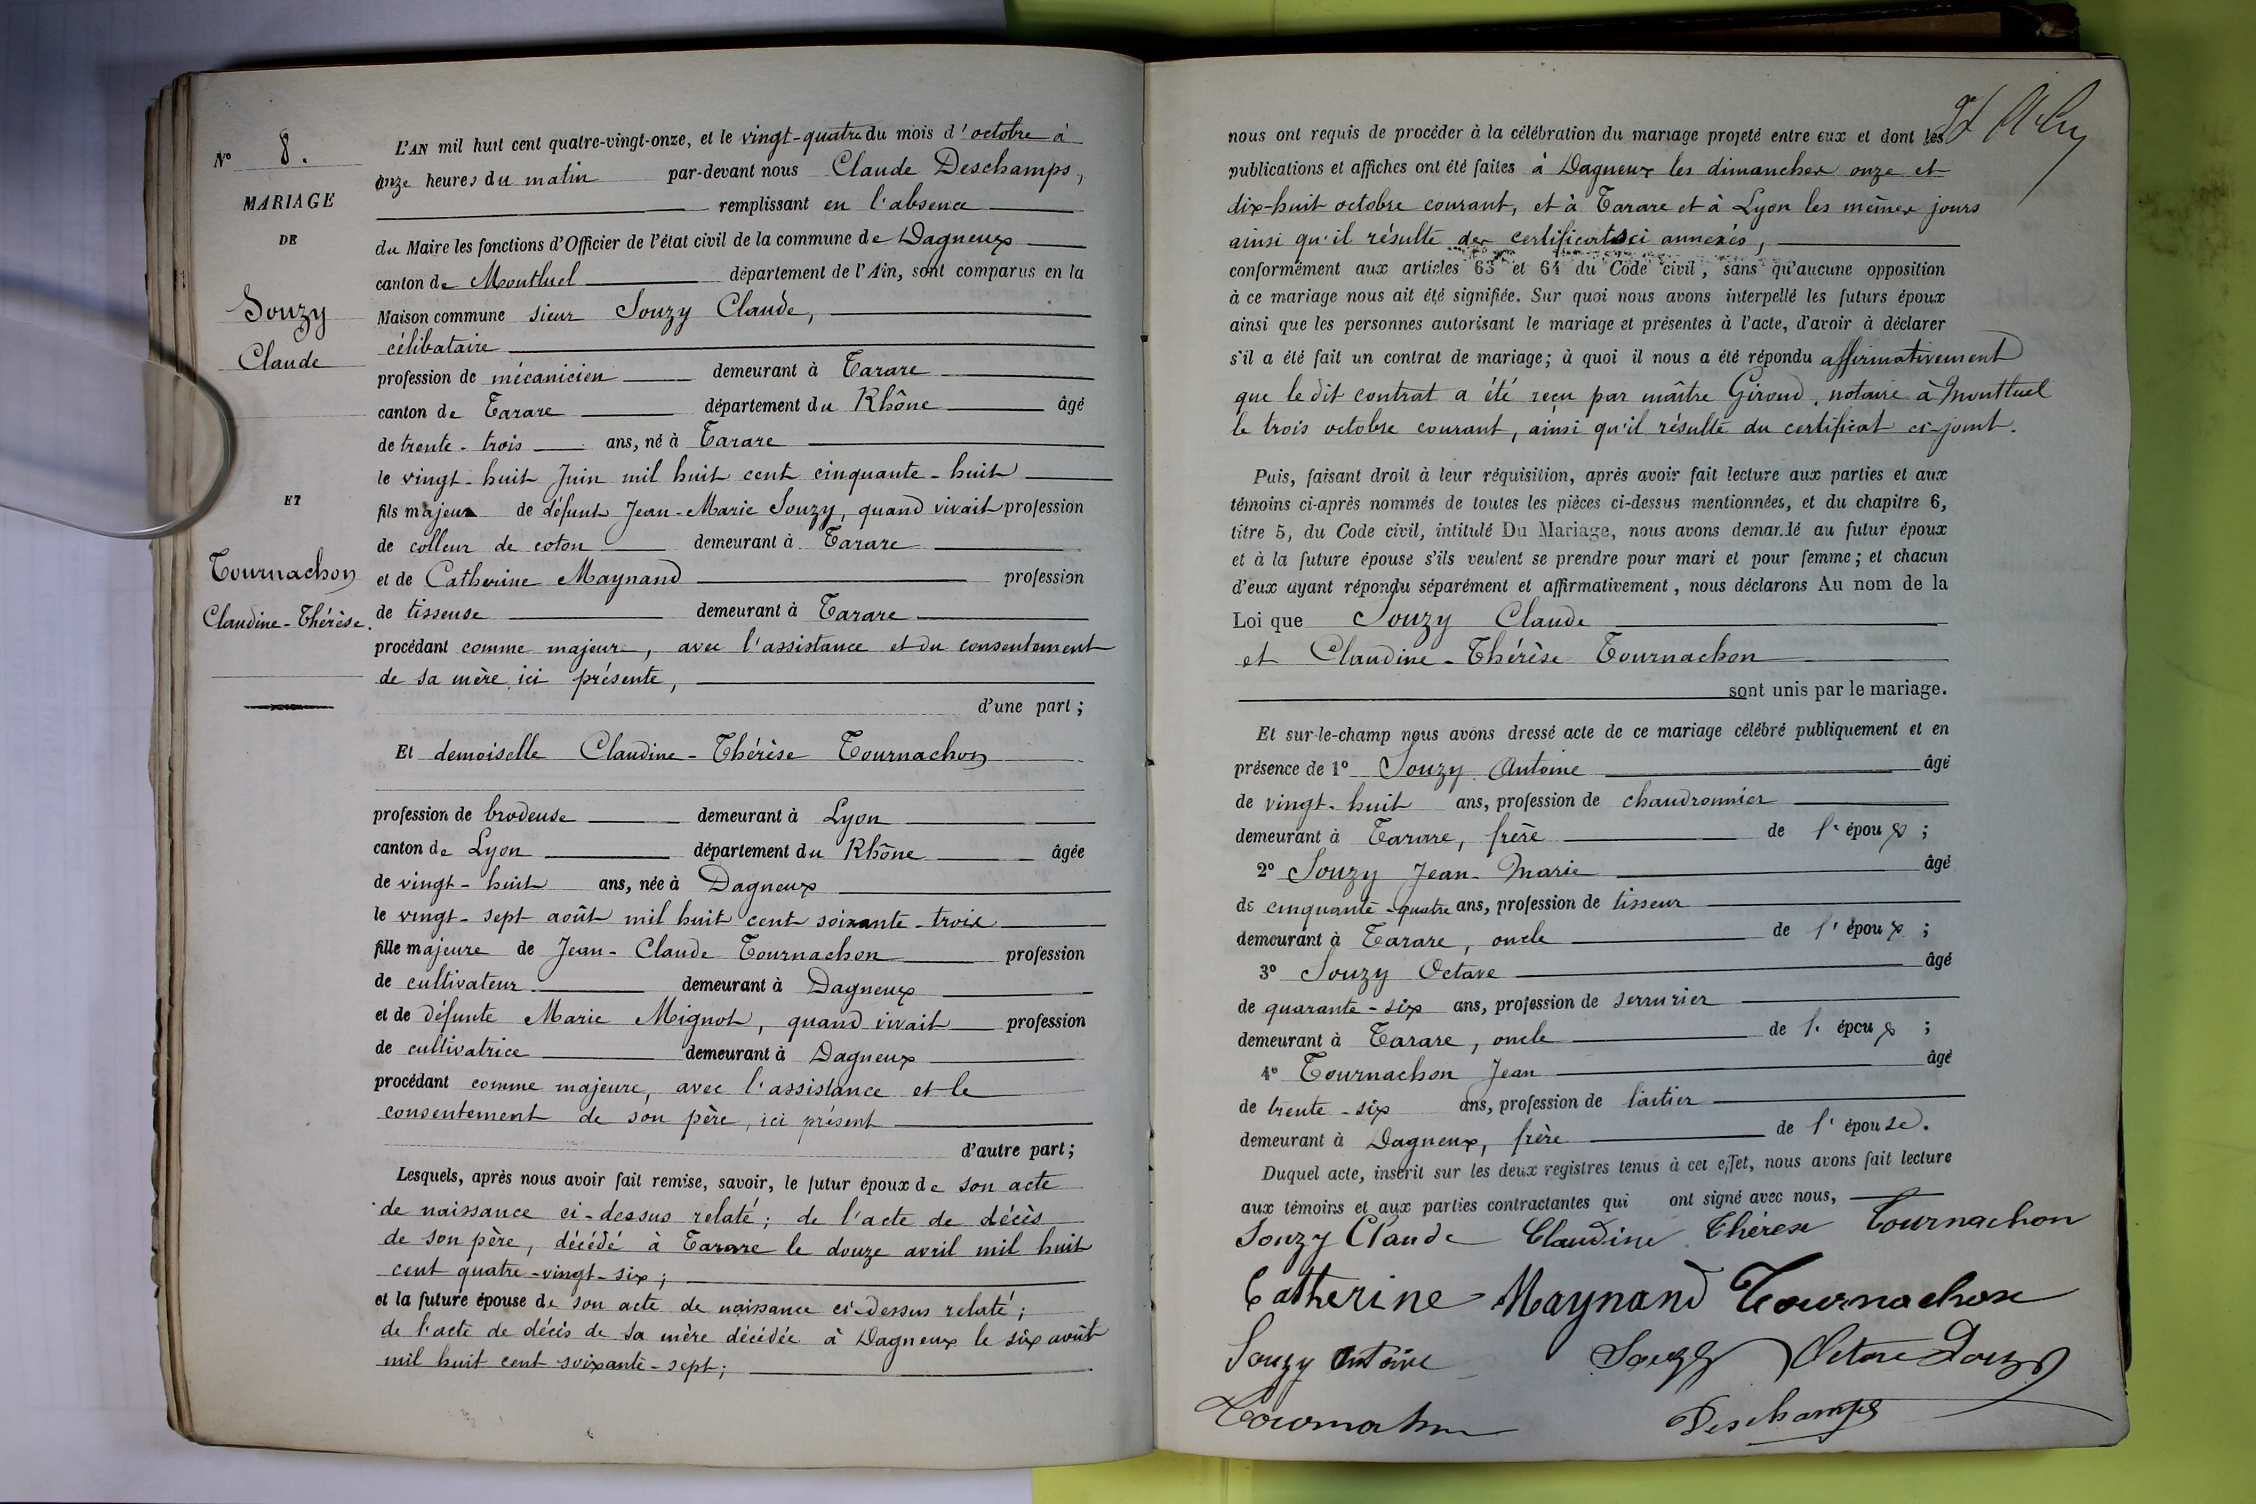 N° 8.
MARIAGE
DE
Souzy
Claude
ET
Tournachon
Claudine-Thérèse.
L'AN mil huit cent quatre-vingt-onze, et le vingt-quatre du mois d'octobre à
onze heures du matin par-devant nous Claude Deschamps,
remplissant en l'absence
du Maire les fonctions d'Officier de l'état civil de la commune de Dagneux
canton de Montluel département de l'Ain, sont comparus en la
Maison commune sieur Souzy Claude,
célibataire
profession de mécanicien demeurant à Tarare
canton de Tarare département du Rhône âgé
de trente-trois ans, né à Tarare
le vingt-huit Juin mil huit cent cinquante-huit
fils majeur de défunt Jean-Marie Souzy, quand vivait profession
de colleur de coton demeurant à Tarare
et de Catherine Maynand profession
de tisseuse demeurant à Tarare
procédant comme majeur, avec l'assistance et du consentement
de sa mère ici présente,
d'une part;
Et demoiselle Claudine-Thérèse Tournachon
profession de brodeuse demeurant à Lyon
canton de Lyon département du Rhône âgée
de vingt-huit ans, née à Dagneux
le vingt-sept août mil huit cent soixante-trois
fille majeure de Jean-Claude Tournachon profession
de cultivateur demeurant à Dagneux
et de défunte Marie Mignot, quand vivait profession
de cultivatrice demeurant à Dagneux
procédant comme majeure, avec l'assistance et le
consentement de son père, ici présent
d'autre part;
Lesquels, après nous avoir fait remise, savoir, le futur époux de son acte
de naissance ci-dessus relaté; de l'acte de décès
de son père, décédé à Tarare le douze avril mil huit
cent quatre-vingt-six;
et la future épouse de son acte de naissance ci-dessus relaté;
de l'acte de décès de sa mère décédée à Dagneux le six août
mil huit cent soixante-sept;
nous ont requis de procéder à la célébration du mariage projeté entre eux et dont les
publications et affiches ont été faites à Dagneux les dimanches onze et
dix-huit octobre courant, et à Tarare et à Lyon les mêmes jours
ainsi qu'il résulte des certificats ci annexés,
conformément aux articles 63 et 64 du Code civil, sans qu'aucune opposition
à ce mariage nous ait été signifiée. Sur quoi nous avons interpellé les futurs époux
ainsi que les personnes autorisant le mariage et présentes à l'acte, d'avoir à déclarer
s'il a été fait un contrat de mariage; à quoi il nous a été répondu affirmativement
que le dit contrat a été reçu par maître Giroud, notaire à Montluel
le trois octobre courant, ainsi qu'il résulte du certificat ci-joint.
Puis, faisant droit à leur réquisition, après avoir fait lecture aux parties et aux
témoins ci-après nommés de toutes les pièces ci-dessus mentionnées, et du chapitre 6,
titre 5, du Code civil, intitulé Du Mariage, nous avons demandé au futur époux
et à la future épouse s'ils veulent se prendre pour mari et pour femme; et chacun
d'eux ayant répondu séparément et affirmativement, nous déclarons Au nom de la
Loi que Souzy Claude
et Claudine-Thérèse Tournachon
sont unis par le mariage.
Et sur-le-champ nous avons dressé acte de ce mariage célébré publiquement et en
présence de 1° Souzy Antoine âgé
de vingt-huit ans, profession de chaudronnier
demeurant à Tarare, frère de l'époux;
2° Souzy Jean-Marie âgé
de cinquante-quatre ans, profession de tisseur
demeurant à Tarare, oncle de l'époux;
3° Souzy Octave âgé
de quarante-six ans, profession de serrurier
demeurant à Tarare, oncle de l'époux;
4° Tournachon Jean âgé
de trente-six ans, profession de laitier
demeurant à Dagneux, frère de l'épouse.
Duquel acte, inscrit sur les deux registres tenus à cet effet, nous avons fait lecture
aux témoins et aux parties contractantes qui ont signé avec nous,
Souzy Claude Claudine Thérèse Tournachon
Catherine Maynand Tournachon
Souzy Antoine Souzy Octave Souzy
Tournachon Deschamps